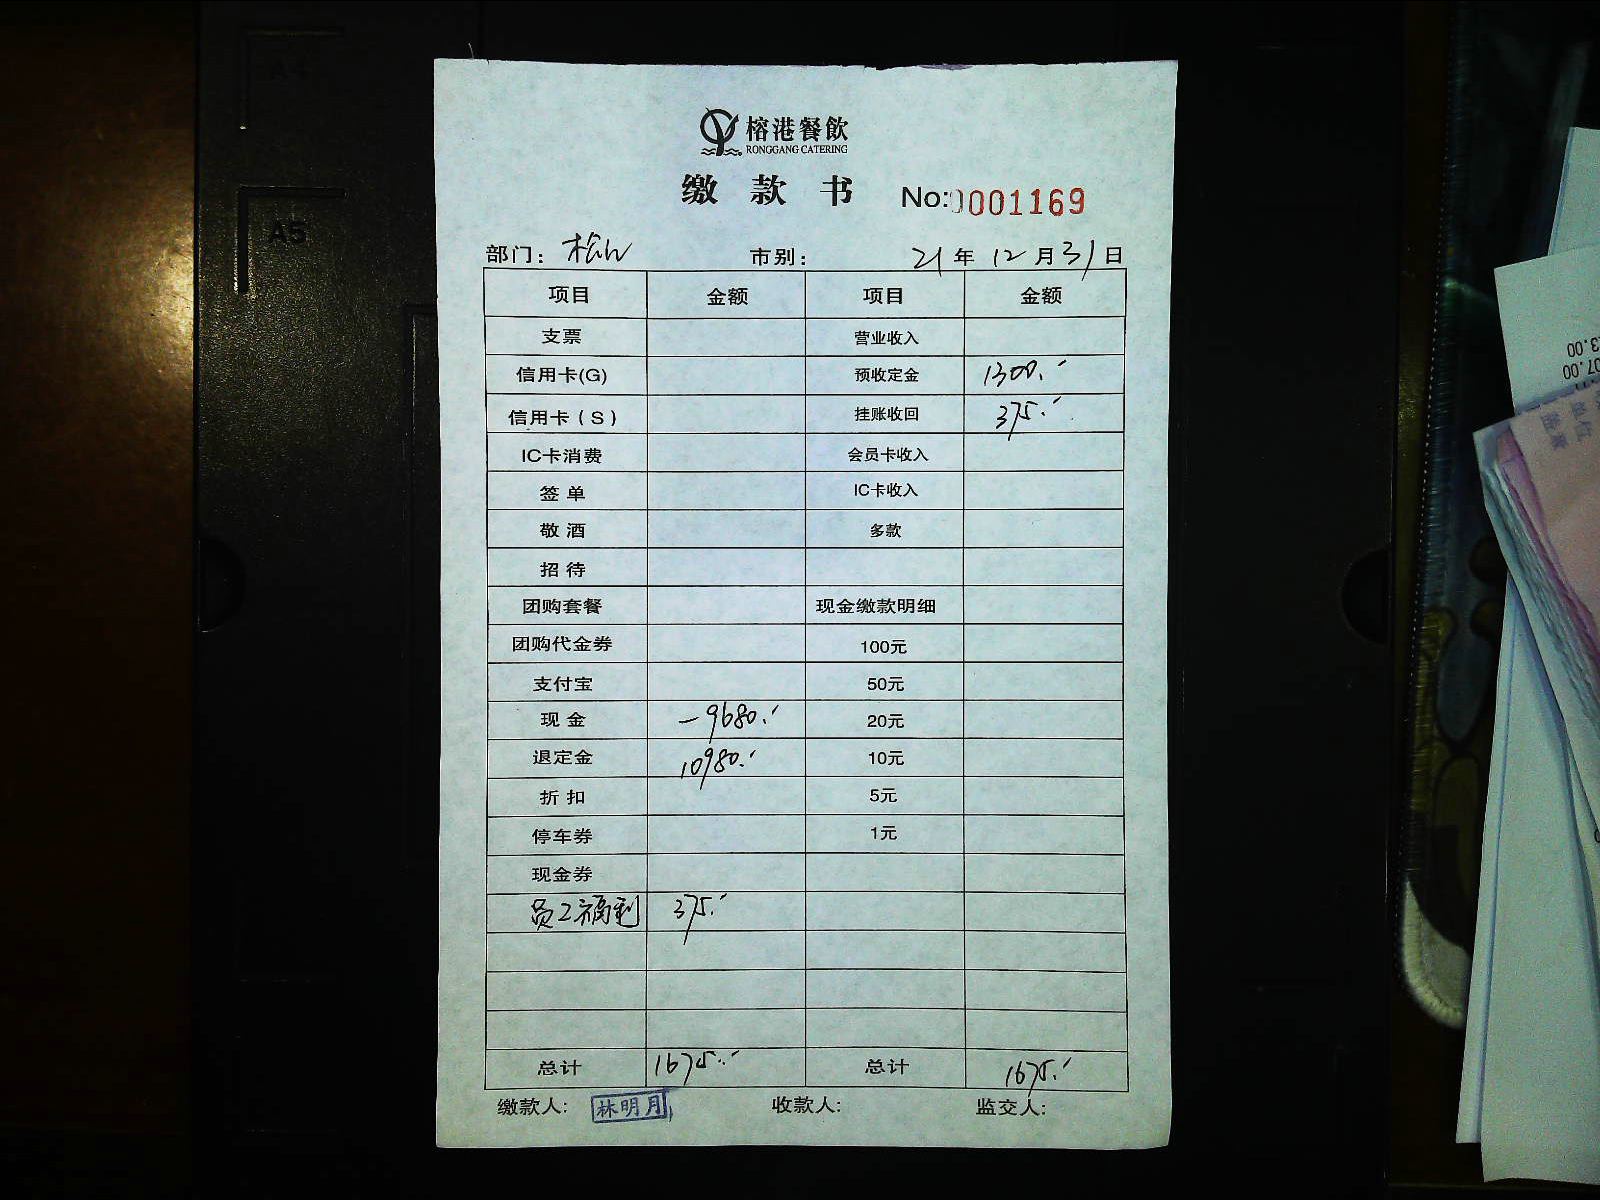 A4
A5
榕港餐飲
RONGGANG CATERING
缴 款 书 No:0001169
部门: 松山 市别: 21年 12月31日
项目 金额 项目 金额
支票 营业收入
信用卡(G) 预收定金 1300.
信用卡(S) 挂账收回 375.
IC卡消费 会员卡收入
签单 IC卡收入
敬酒 多款
招待
团购套餐 现金缴款明细
团购代金券 100元
支付宝 50元
现金 -9680. 20元
退定金 10980. 10元
折扣 5元
停车券 1元
现金券
员工福利 375.
总计 1675. 总计 1675.
缴款人: 林明月 收款人: 监交人:
3.00
07.00